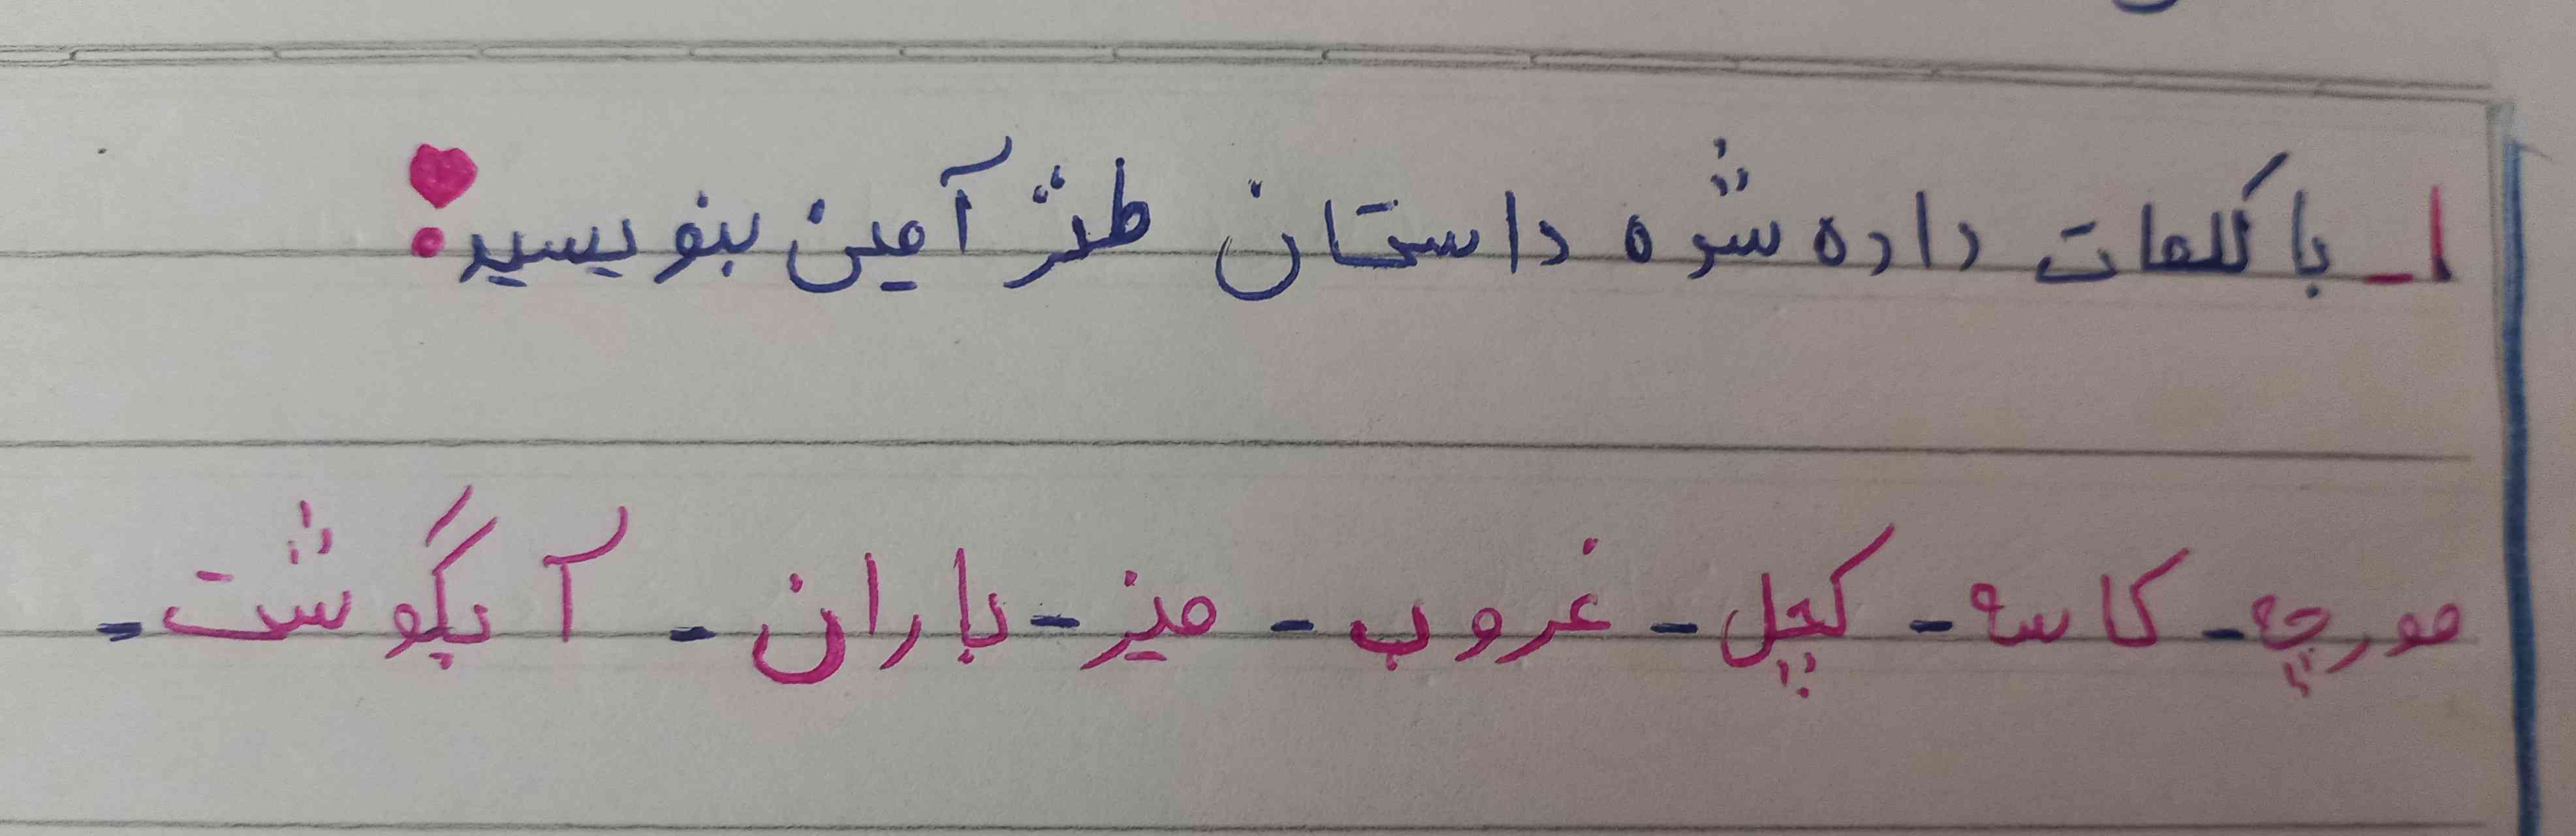 ۱_ با کلمات داده شده داستان طنز آمین بنویسید:
مورچه - کاسه - کچل - غروب - میز - باران - آبگوشت -